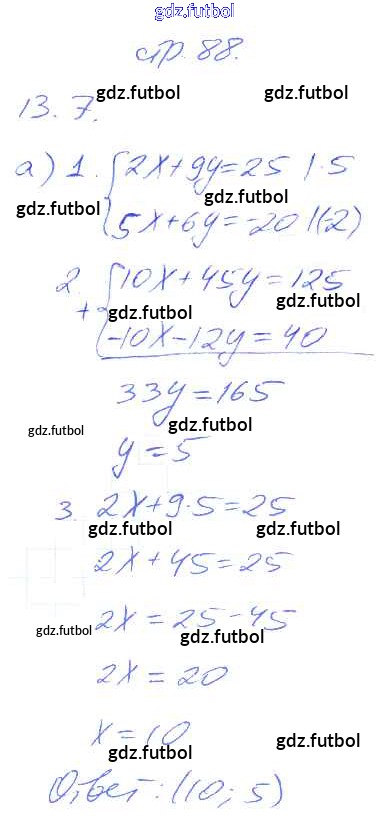 gdz.futbol
стр. 88.
gdz.futbol gdz.futbol
13. 7.
а) 1. { 2x + 9y = 25 | · 5
gdz.futbol gdz.futbol
5x + 6y = -20 | (-2)
2. { 10x + 45y = 125
gdz.futbol gdz.futbol
+ -10x - 12y = 40
33y = 165
gdz.futbol gdz.futbol
y = 5
3. 2x + 9 · 5 = 25
gdz.futbol gdz.futbol
2x + 45 = 25
2x = 25 - 45
gdz.futbol gdz.futbol
2x = 20
x = 10
gdz.futbol gdz.futbol
Ответ: (10; 5)